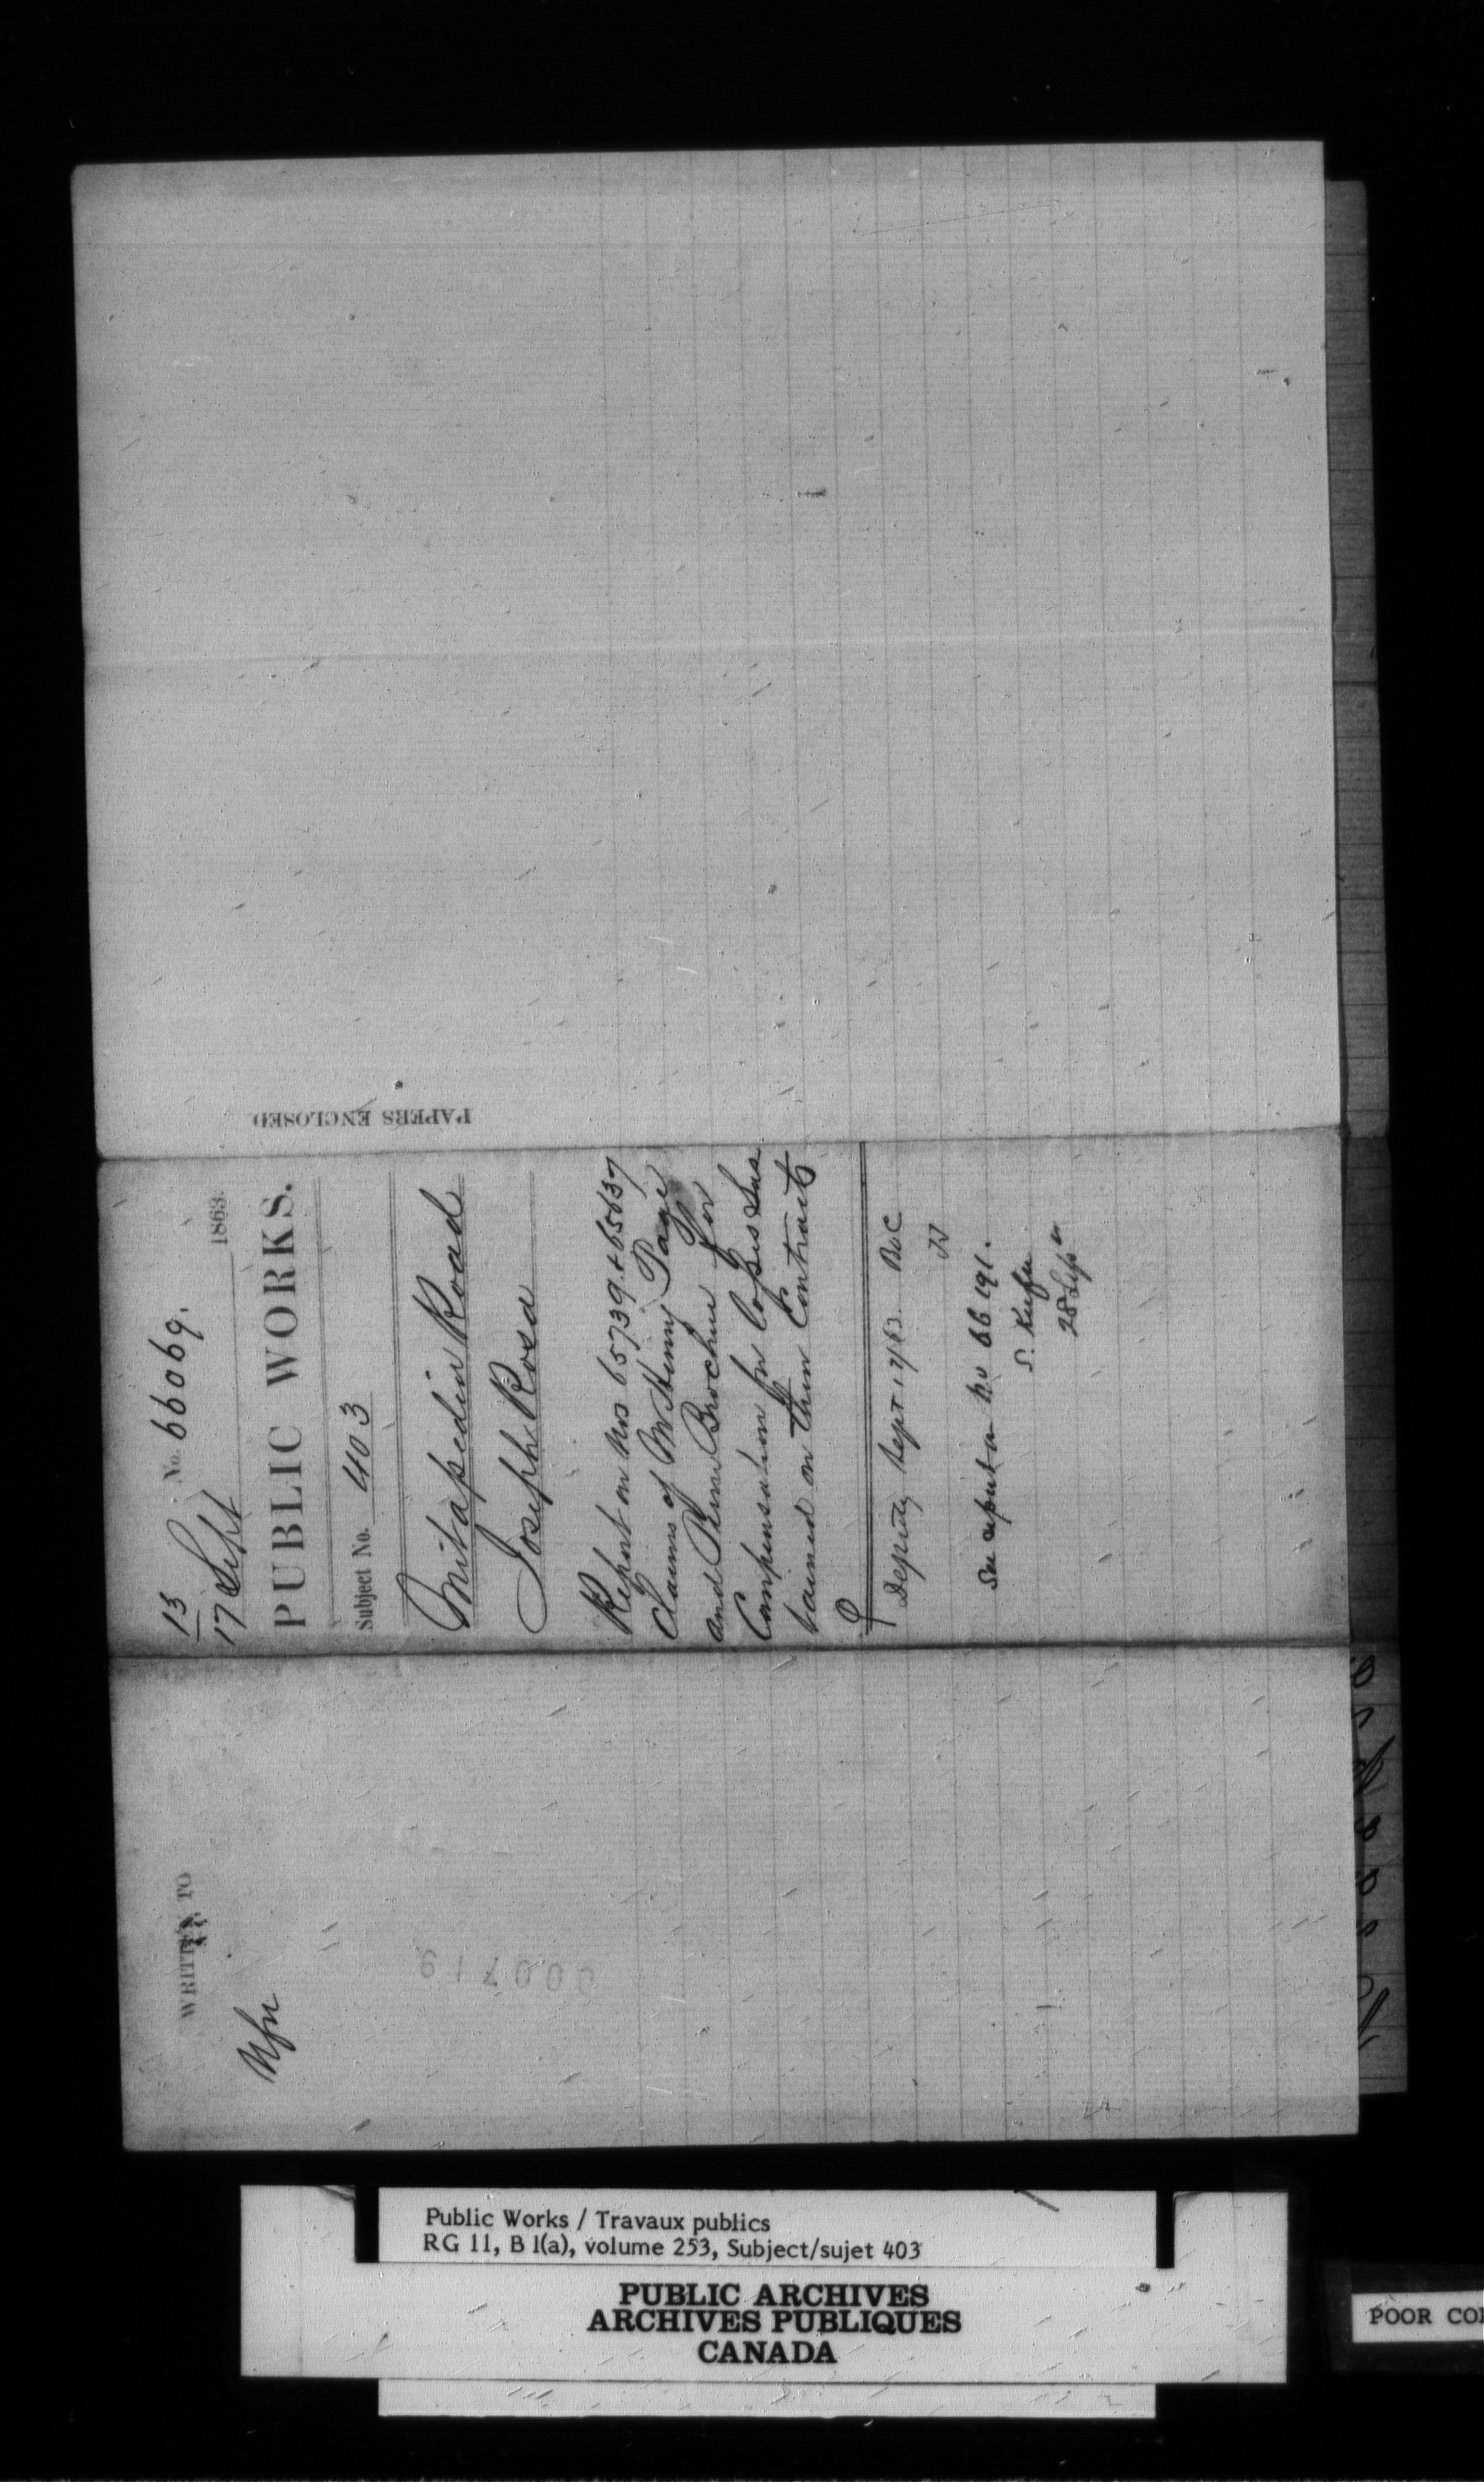 13
17 Sept
No. 66069.
1863.
PUBLIC WORKS.
Subject No. 403
Mitapedia Road
Joseph Rosa
Report on Nos 65739 & 65637
Claims of M Henry Page
and Pierre Brochu for
Compensation for losses sus
tained on their Contracts
Deputy Sept 17/63.
See report on No 66191.
28 Sep
PAPERS ENCLOSED
WRITTEN TO
Public Works / Travaux publics
RG 11, B 1(a), volume 253, Subject/sujet 403
PUBLIC ARCHIVES
ARCHIVES PUBLIQUES
CANADA
POOR